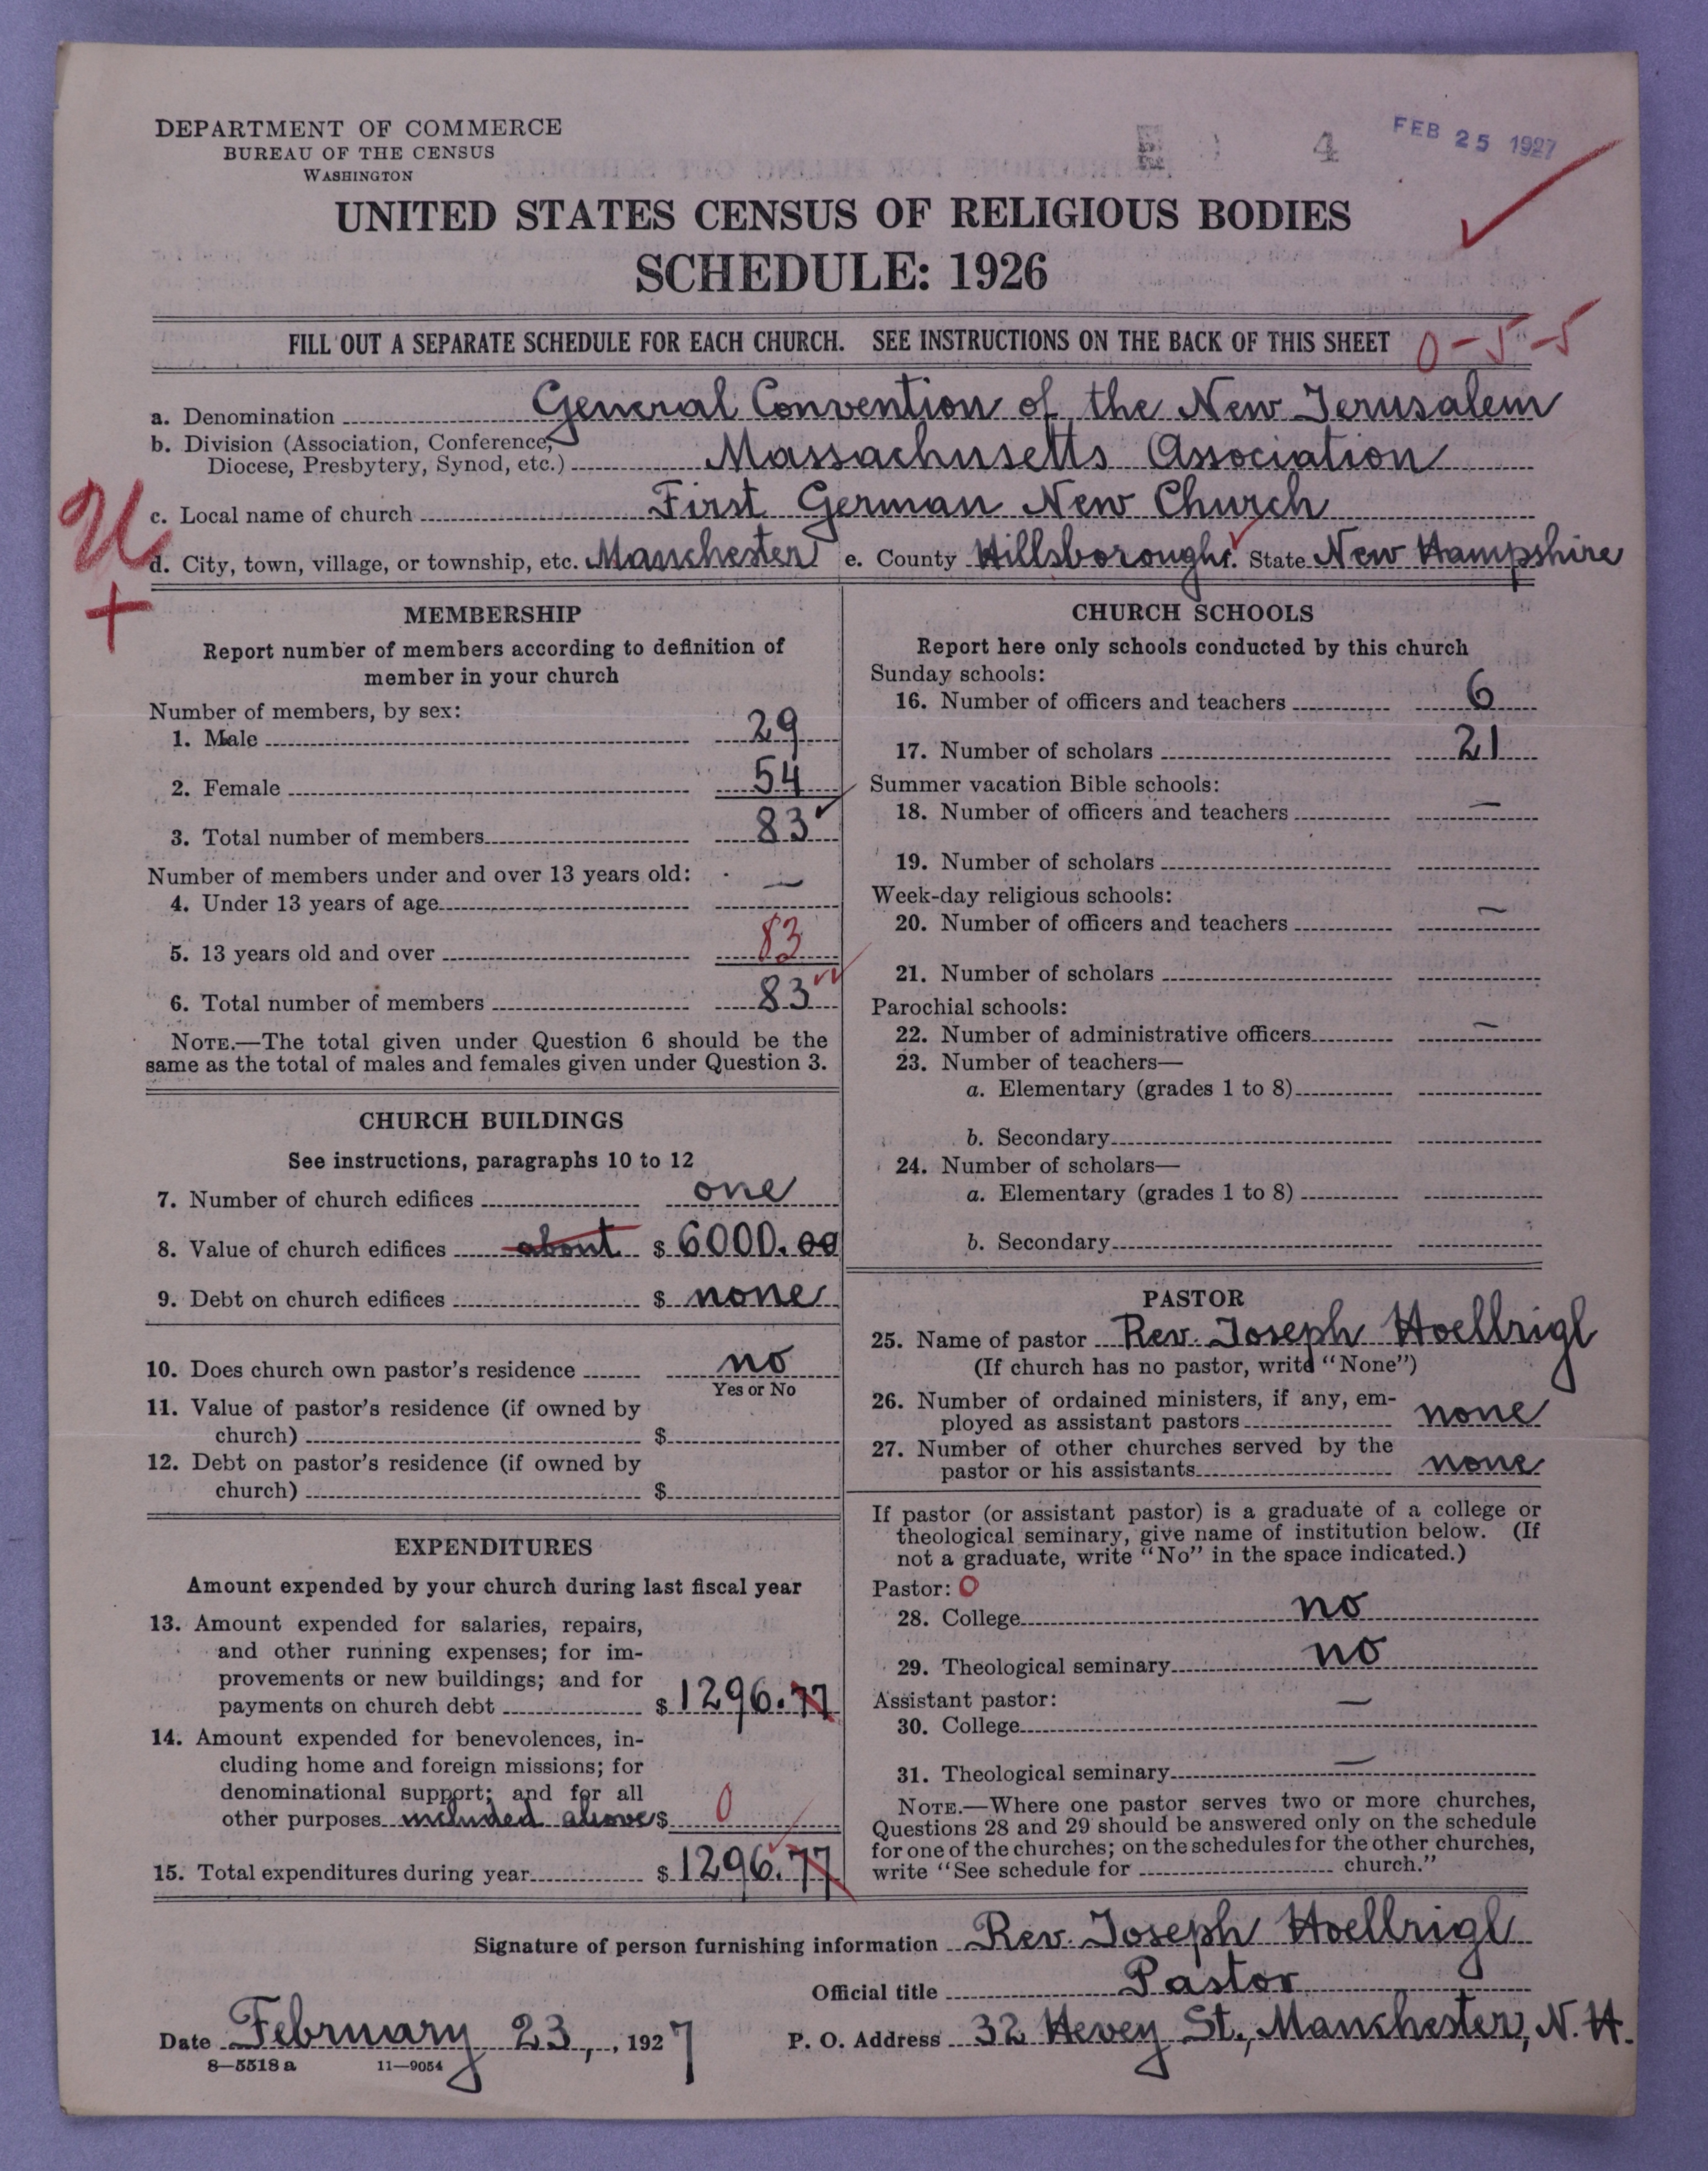 DEPARTMENT OF COMMERCE
BUREAU OF THE CENSUS
WASHINGTON
4
FEB 25 1927
UNITED STATES CENSUS OF RELIGIOUS BODIES
SCHEDULE: 1926
FILL OUT A SEPARATE SCHEDULE FOR EACH CHURCH. SEE INSTRUCTIONS ON THE BACK OF THIS SHEET 0-5-5
a. Denomination General Convention of the New Jerusalem
b. Division (Association, Conference,
Diocese, Presbytery, Synod, etc.) Massachusetts Association
c. Local name of church First German New Church
U
d. City, town, village, or township, etc. Manchester e. County Hillsborough f. State New Hampshire
+
MEMBERSHIP
Report number of members according to definition of
member in your church
Number of members, by sex:
1. Male 29
2. Female 54
3. Total number of members 83
Number of members under and over 13 years old:
4. Under 13 years of age —
5. 13 years old and over 83
6. Total number of members 83
NOTE.—The total given under Question 6 should be the
same as the total of males and females given under Question 3.
CHURCH BUILDINGS
See instructions, paragraphs 10 to 12
7. Number of church edifices one
8. Value of church edifices about $ 6000.00
9. Debt on church edifices $ none
10. Does church own pastor's residence no
Yes or No
11. Value of pastor's residence (if owned by
church) $
12. Debt on pastor's residence (if owned by
church) $
EXPENDITURES
Amount expended by your church during last fiscal year
13. Amount expended for salaries, repairs,
and other running expenses; for im-
provements or new buildings; and for
payments on church debt $ 1296.77
14. Amount expended for benevolences, in-
cluding home and foreign missions; for
denominational support; and for all
other purposes included above $ 0
15. Total expenditures during year $ 1296.77
CHURCH SCHOOLS
Report here only schools conducted by this church
Sunday schools:
16. Number of officers and teachers 6
17. Number of scholars 21
Summer vacation Bible schools:
18. Number of officers and teachers —
19. Number of scholars
Week-day religious schools:
20. Number of officers and teachers —
21. Number of scholars
Parochial schools:
22. Number of administrative officers —
23. Number of teachers—
a. Elementary (grades 1 to 8)
b. Secondary
24. Number of scholars—
a. Elementary (grades 1 to 8)
b. Secondary
PASTOR
25. Name of pastor Rev. Joseph Hoellrigl
(If church has no pastor, write "None")
26. Number of ordained ministers, if any, em-
ployed as assistant pastors none
27. Number of other churches served by the
pastor or his assistants none
If pastor (or assistant pastor) is a graduate of a college or
theological seminary, give name of institution below. (If
not a graduate, write "No" in the space indicated.)
Pastor: 0
28. College no
29. Theological seminary no
Assistant pastor:
30. College —
31. Theological seminary —
NOTE.—Where one pastor serves two or more churches,
Questions 28 and 29 should be answered only on the schedule
for one of the churches; on the schedules for the other churches,
write "See schedule for church."
Signature of person furnishing information Rev. Joseph Hoellrigl
Official title Pastor
Date February 23, , 1927 P. O. Address 32 Hevey St., Manchester, N. H.
8—5518 a 11—9054